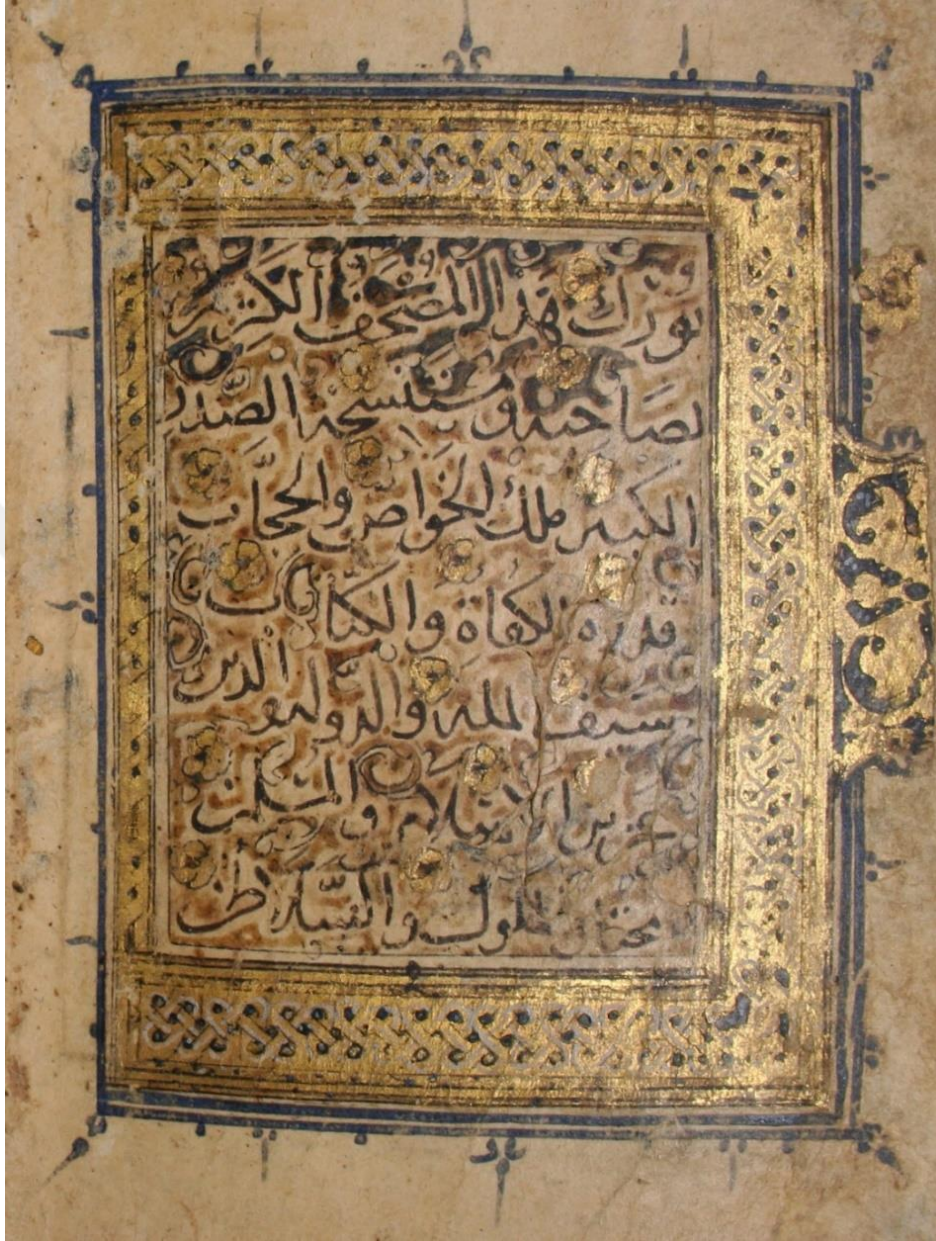 بورك هذا المصحف الكريم
لصاحبه ومستنسخه الصدر
الكبير ملك الخواص والحجاب
قدوة الكفاة والكتاب
سيف الملة والدولة والدين
الاسلام و المسلمين
مختار الملوك والسلاطين